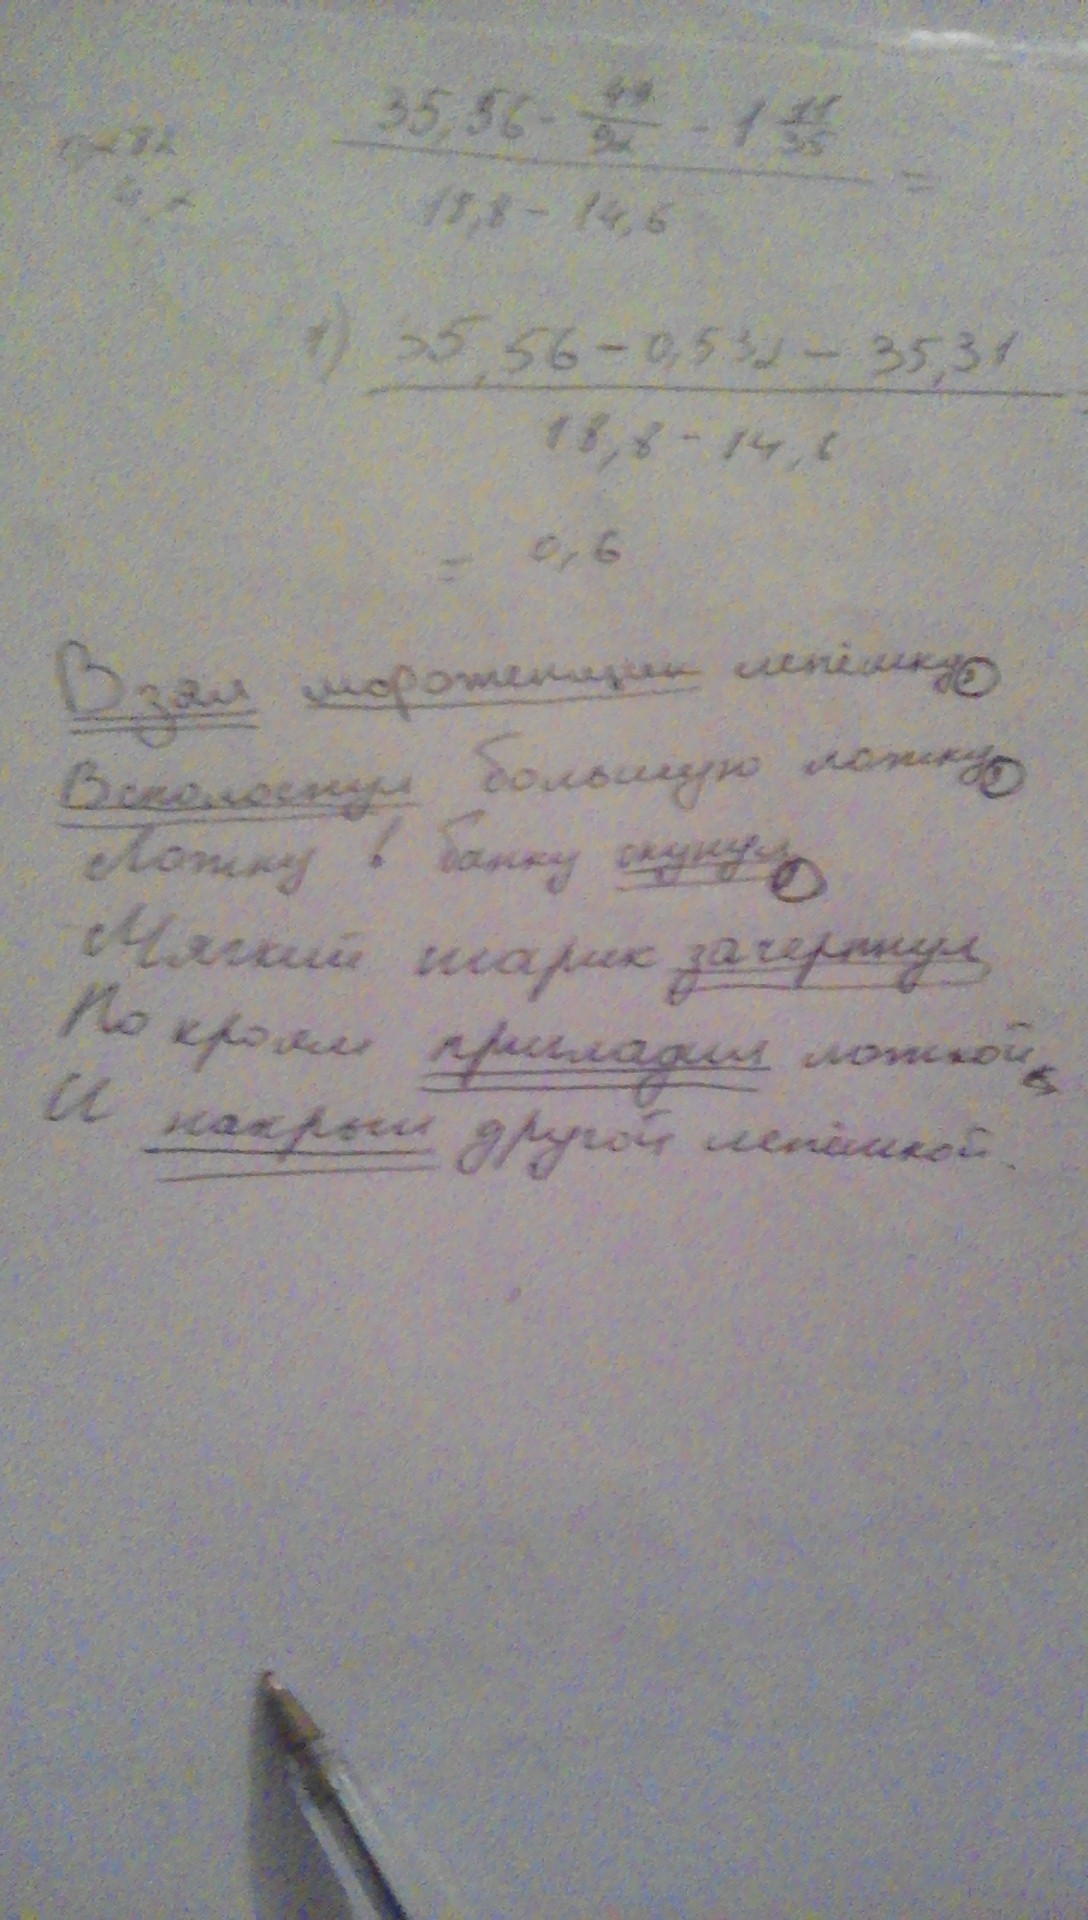 35,56 - 49/92 - 1 11/35 =
18,8 - 14,6
1) 35,56 - 0,532 - 35,31
18,8 - 14,6
= 0,6
Взял мороженщик лепёшку,
Всполоснул большую ложку,
Ложку в банку окунул,
Мягкий шарик зачерпнул
По краям пригладил ложкой,
И накрыл другой лепёшкой.